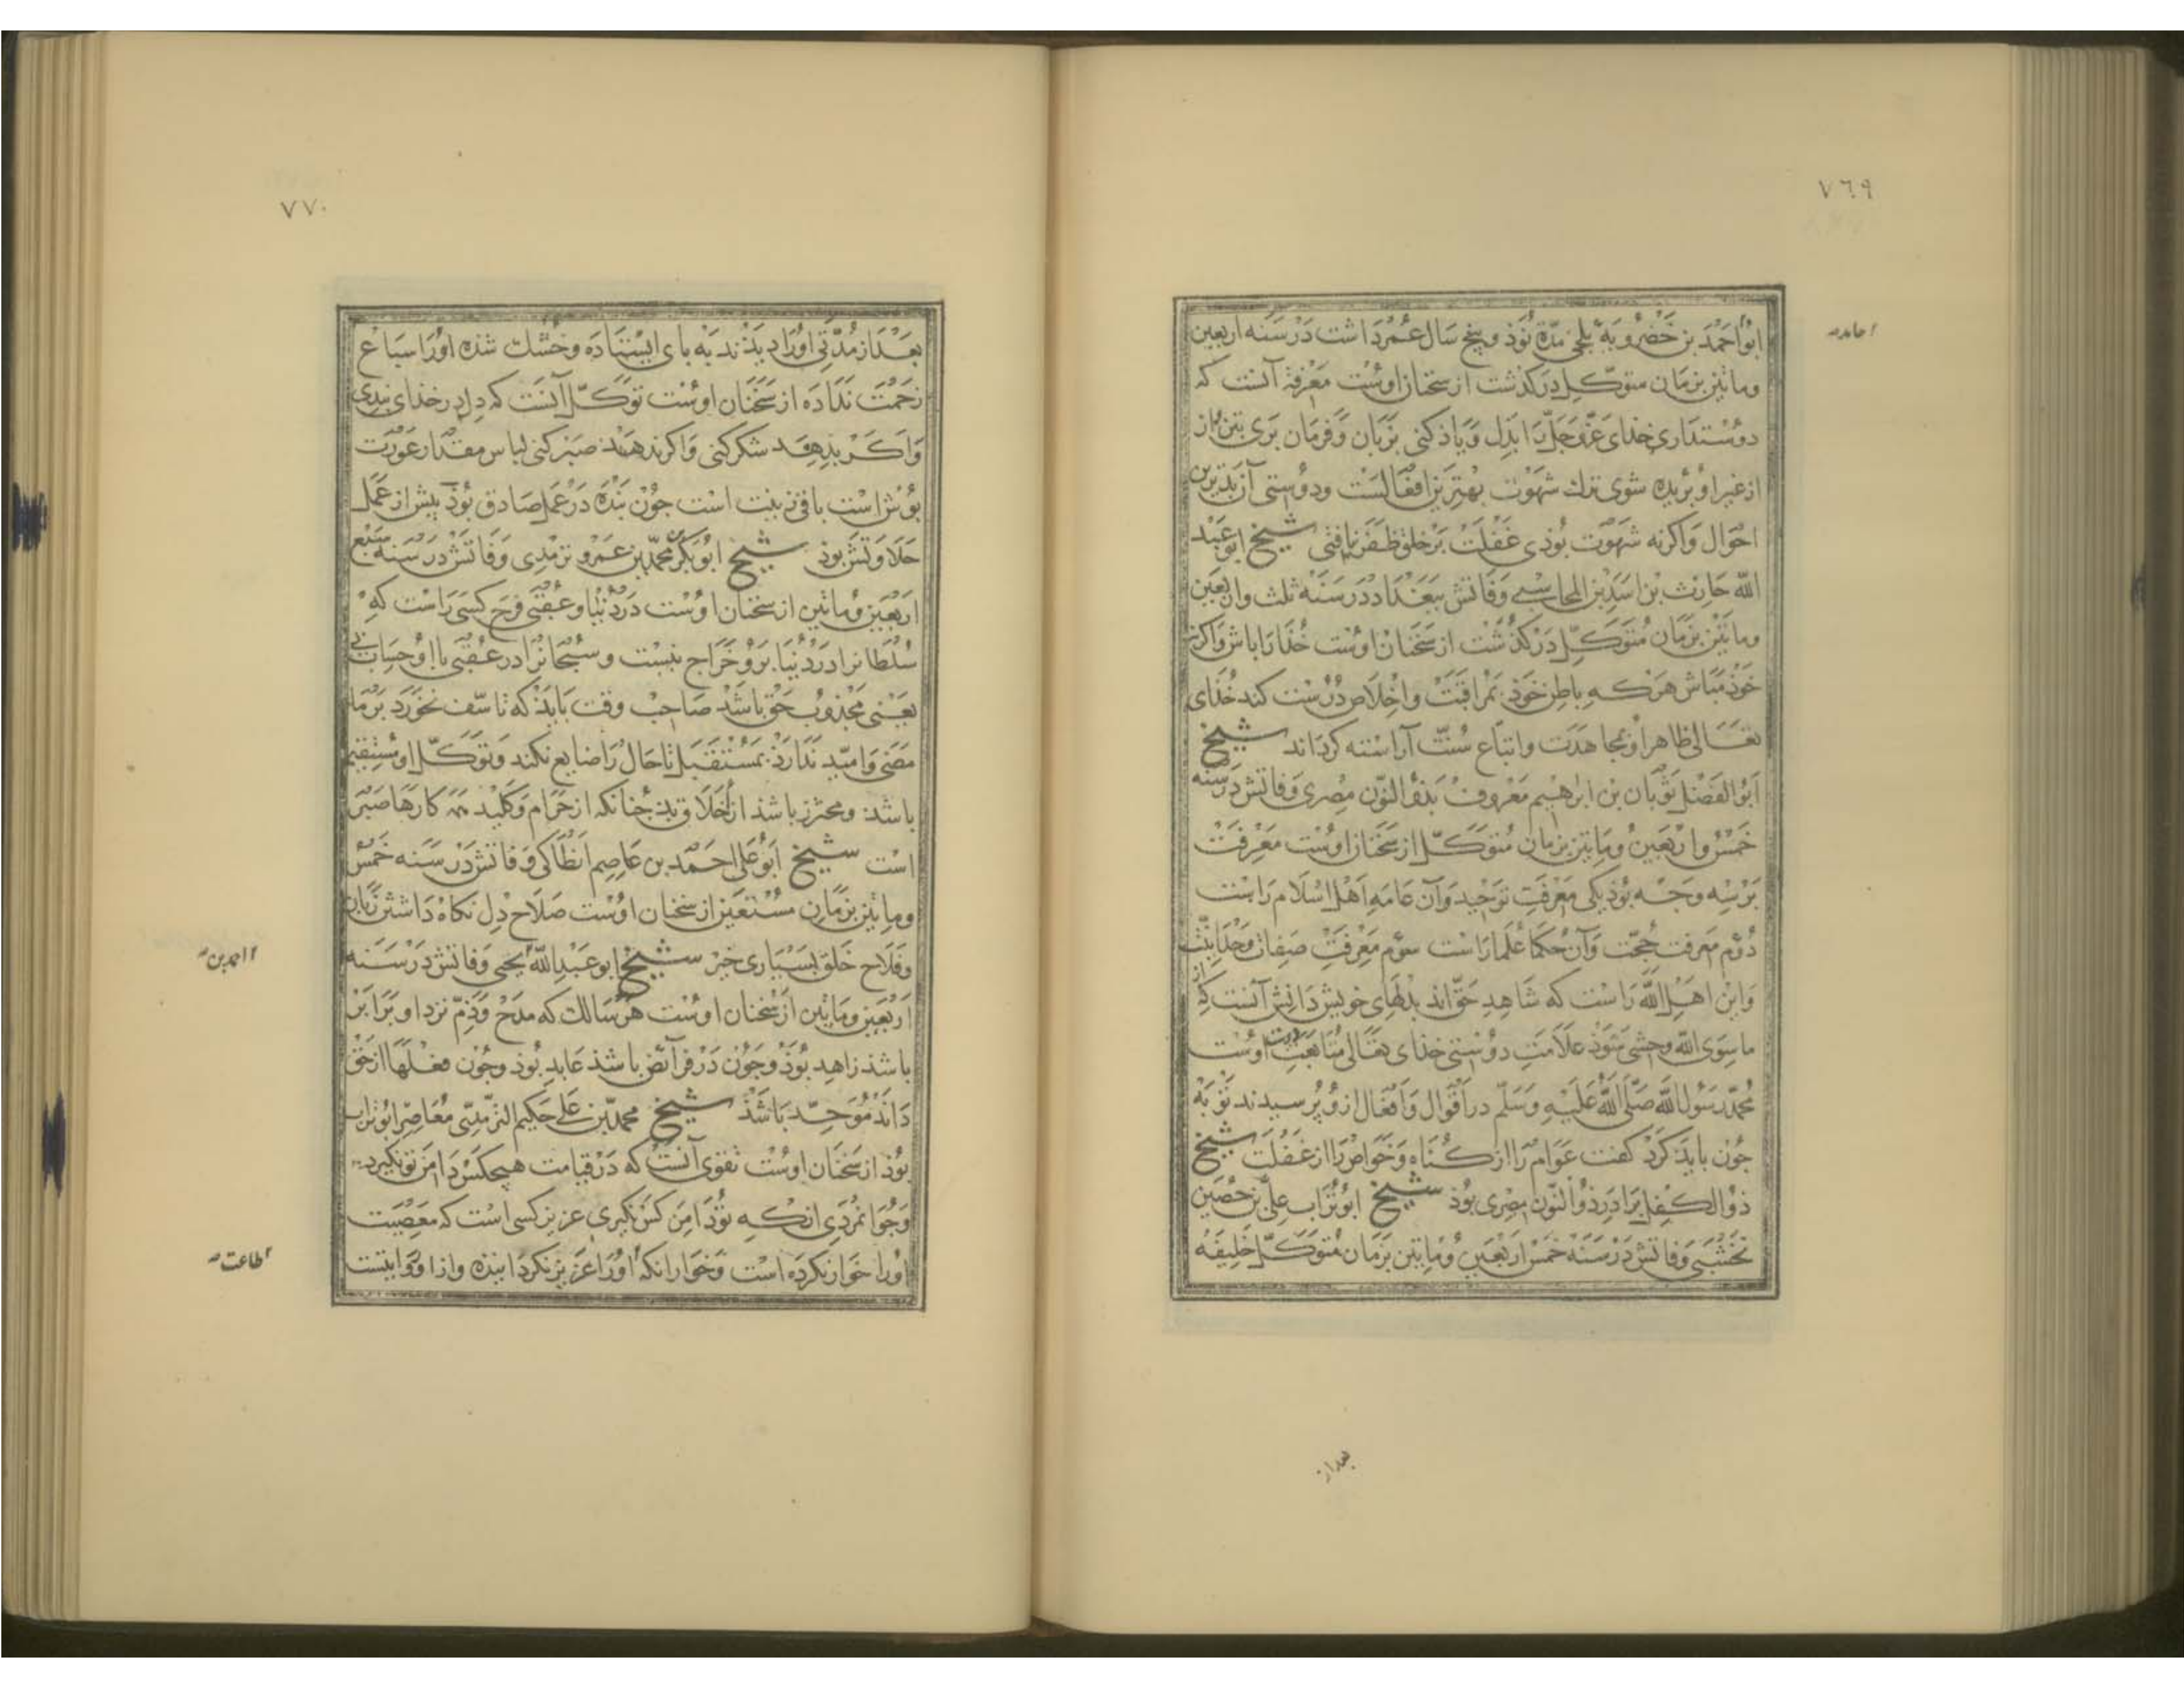 ٧٦٩
احامد
ابُو اَحمَد بن خضرُویهٔ بلخی مدّة نَوَذ و پنج سَال عُمر دَاشت دَر سَنه اربعین
وماتین بزمَان متوکّل درکذشت از سخنان اوست مَعرفة آنست که
دوُستداری خدای عَزّوَجَلّ رَا بدِل وَیاد کنی بزبان وَفرمَان بَری بتن و از
از غیر او بُریده شوی ترك شهوت بهترین افعَالست ودوستی آن بَدترین
احوَال وَاکرنه شهوَت بُوذی غَفلت بَر خلق ظفَر نیافتی شیخ ابو عَبد
اللّه حَارث بن اسَد بن المحاسبی وَفاتش ببَغدَاد دَر سَنَه ثلث واربعین
وماتین بزمَان مُتوَکّل دَر کذشت از سَخنان اوست خُدَا رَا باش وَاکرنه
خوَذ مَباش هَرکه باطِن خوَذ بمَراقبَت واخلَاص دُرست کند خُدای
تعَالی ظاهر او بمجاهدَت واتبَاع سُنّت آرَاسته کردَاند شیخ
ابَوُ الفَضل ثَوبَان بن ابرهیم مَعروف بذو النّون مصری وَفاتش دَر سنه
خَمس واربَعین ومَاتین بزمَان مُتوکّل از سَخنان اوست مَعرفت
بَر سِه وَجه بُوذ یکی مَعرفتِ توَحید وَآن عَامه اَهل اسلَام رَاست
دُوّم مَعرفت حُجّت وَآن حُکما عُلما رَاست سوّم مَعرفتِ صِفات وَحدَانیّت
وَاین اهل اللّه رَاست که شاهدِ حقّ اند بدلهَای خویش دَانش آنست که از
ما سِوَی اللّه وحشی شوَذ علَامَتِ دوُستی خذای تعَالی مُتابعَت دوست اوست
مُحمّد رَسُول اللّه صَلّی اللّه عَلَیه وَسَلّم در اَقوال وَافعَال ازو پُرسیدند توَبَه
چون بایذ کرَد کفت عَوَام رَا از کناه وَخوَاص رَا از غفلَت شیخ
ذو الکفل برَادر ذو النّون مِصری بُوذ شیخ ابوتُرَاب علی بن حُصَین
نخشَبی وَفاتش دَر سَنَه خمس اربَعین ومَاتین بزمَان مُتوَکّل خلیفه
بعداز
٧٧٠
بعَد از مُدّتی اورا دیذند بَه بای ایستاده وخُشك شذه اورا سبَاع
زحمَت ندَاده از سَخنان اوست توَکّل آنَست که دل در خذای بندی
وَاکَر بدهد شکر کنی وَاکر ندهد صبر کنی لباس مقدَار عَورَت
بوُش است باقی زینت است جوُن بندَه دَر عَمل صَادق بُوذ بیش از عَمَل
حَلاوَتش بوذ شیخ ابوُبَکر محمّد بن عَمرو ترمدی وَفاتش دَر سَنه سَبع
اربَعین ومَاتین از سخنان اوست دَر دُنیا وعُقبی فرَح کسی رَاست که
سُلطَانرا دَر دُنیَا برَو خَرَاج نیست وسُبحَانرا دَر عُقبی با او حِسَاب نی
یعَنی مجَذوب حَق باشَد صَاحِب وقت بایَذ که تاسّف نخورَد بَر مَا
مَضی وَامیّد ندَارَذ بمُستقبَل تا حَال رَا ضایع نکند وَتوَکّل او مُستقیم
باشذ ومحترز باشذ از اَخلَاق بذ چُنانکه از حَرَام وَکلید همه کارهَا صَبر
است شیخ ابوُ علی احمَد بن عَاصِم انطَاکی وَفاتش دَر سَنه خَمس
ومَاتین بزمَان مُستَعین از سخنان اوُست صَلَاح دِل نکَاه دَاشتن زبان
وفلَاح خلق بسیاری خیر شیخ ابو عَبد اللّه یحیی وَفاتش دَر سَنَه
ااحمدبن
اَربَعین ومَاتین از سُخنان اوست هر سَالك که مَدح وَذمّ نزد او برَابَر
باشذ زاهِد بُوذ وجَون دَر فرَآئض باشذ عَابد بُوذ وجُون فعلهَا از حَق
دَاند مُوَحّد بَاشذ شیخ محمّد بن عَلی حَکیم الترمَذی مُعَاصِر ابوتراب
بُوذ از سَخنان اوست تقوی آنست که دَر قیامت هیچکسَ دَامن تو نکیرد
وَجُوَانمَردی انکه توُ دَامَن کس نکیری عزیز کسی است که مَعصِیَت
اورا خوَار نکردَه است وَخوَار انکه اورَا عَزیز نکردَانیذه وازا ووَایتست
اطاعت